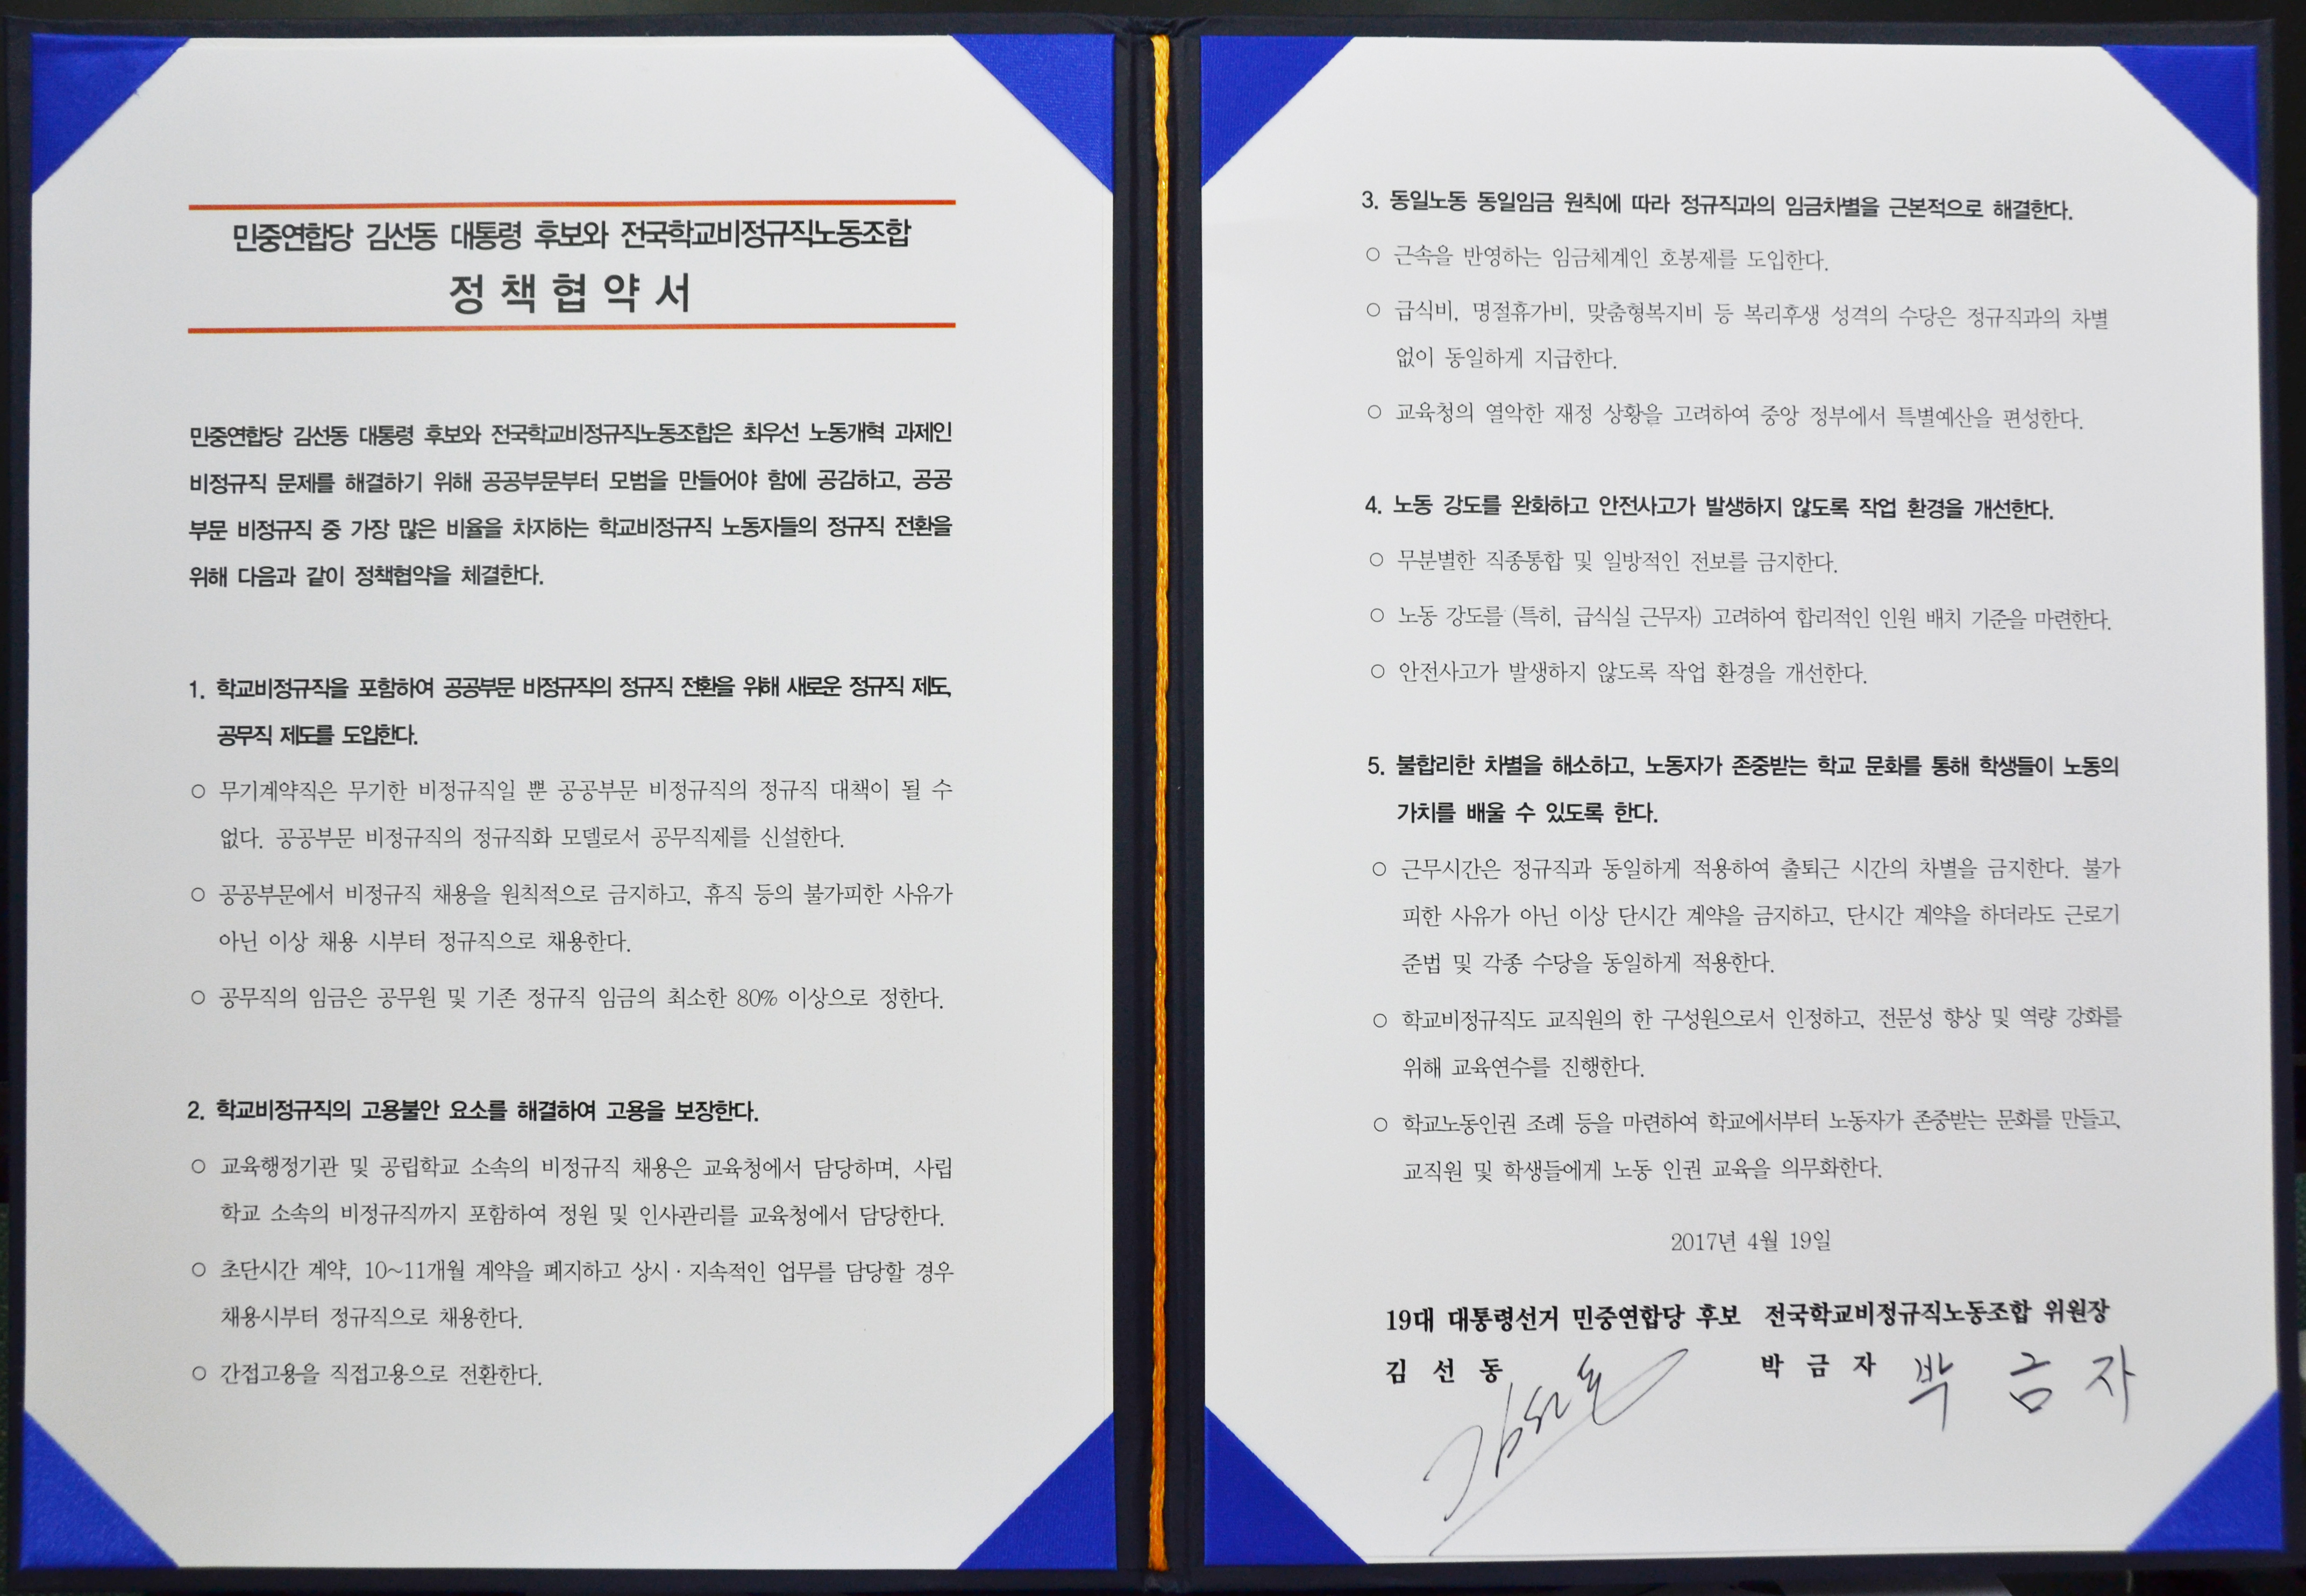 민중연합당 김선동 대통령 후보와 전국학교비정규직노동조합
정책협약서
민중연합당 김선동 대통령 후보와 전국학교비정규직노동조합은 최우선 노동개혁 과제인
비정규직 문제를 해결하기 위해 공공부문부터 모범을 만들어야 함에 공감하고, 공공
부문 비정규직 중 가장 많은 비율을 차지하는 학교비정규직 노동자들의 정규직 전환을
위해 다음과 같이 정책협약을 체결한다.
1. 학교비정규직을 포함하여 공공부문 비정규직의 정규직 전환을 위해 새로운 정규직 제도,
공무직 제도를 도입한다.
○ 무기계약직은 무기한 비정규직일 뿐 공공부문 비정규직의 정규직 대책이 될 수
없다. 공공부문 비정규직의 정규직화 모델로서 공무직제를 신설한다.
○ 공공부문에서 비정규직 채용을 원칙적으로 금지하고, 휴직 등의 불가피한 사유가
아닌 이상 채용 시부터 정규직으로 채용한다.
○ 공무직의 임금은 공무원 및 기존 정규직 임금의 최소한 80% 이상으로 정한다.
2. 학교비정규직의 고용불안 요소를 해결하여 고용을 보장한다.
○ 교육행정기관 및 공립학교 소속의 비정규직 채용은 교육청에서 담당하며, 사립
학교 소속의 비정규직까지 포함하여 정원 및 인사관리를 교육청에서 담당한다.
○ 초단시간 계약, 10~11개월 계약을 폐지하고 상시·지속적인 업무를 담당할 경우
채용시부터 정규직으로 채용한다.
○ 간접고용을 직접고용으로 전환한다.
3. 동일노동 동일임금 원칙에 따라 정규직과의 임금차별을 근본적으로 해결한다.
○ 근속을 반영하는 임금체계인 호봉제를 도입한다.
○ 급식비, 명절휴가비, 맞춤형복지비 등 복리후생 성격의 수당은 정규직과의 차별
없이 동일하게 지급한다.
○ 교육청의 열악한 재정 상황을 고려하여 중앙 정부에서 특별예산을 편성한다.
4. 노동 강도를 완화하고 안전사고가 발생하지 않도록 작업 환경을 개선한다.
○ 무분별한 직종통합 및 일방적인 전보를 금지한다.
○ 노동 강도를 (특히, 급식실 근무자) 고려하여 합리적인 인원 배치 기준을 마련한다.
○ 안전사고가 발생하지 않도록 작업 환경을 개선한다.
5. 불합리한 차별을 해소하고, 노동자가 존중받는 학교 문화를 통해 학생들이 노동의
가치를 배울 수 있도록 한다.
○ 근무시간은 정규직과 동일하게 적용하여 출퇴근 시간의 차별을 금지한다. 불가
피한 사유가 아닌 이상 단시간 계약을 금지하고, 단시간 계약을 하더라도 근로기
준법 및 각종 수당을 동일하게 적용한다.
○ 학교비정규직도 교직원의 한 구성원으로서 인정하고, 전문성 향상 및 역량 강화를
위해 교육연수를 진행한다.
○ 학교노동인권 조례 등을 마련하여 학교에서부터 노동자가 존중받는 문화를 만들고,
교직원 및 학생들에게 노동 인권 교육을 의무화한다.
2017년 4월 19일
19대 대통령선거 민중연합당 후보 전국학교비정규직노동조합 위원장
김 선 동 김선동 박 금 자 박 금 자